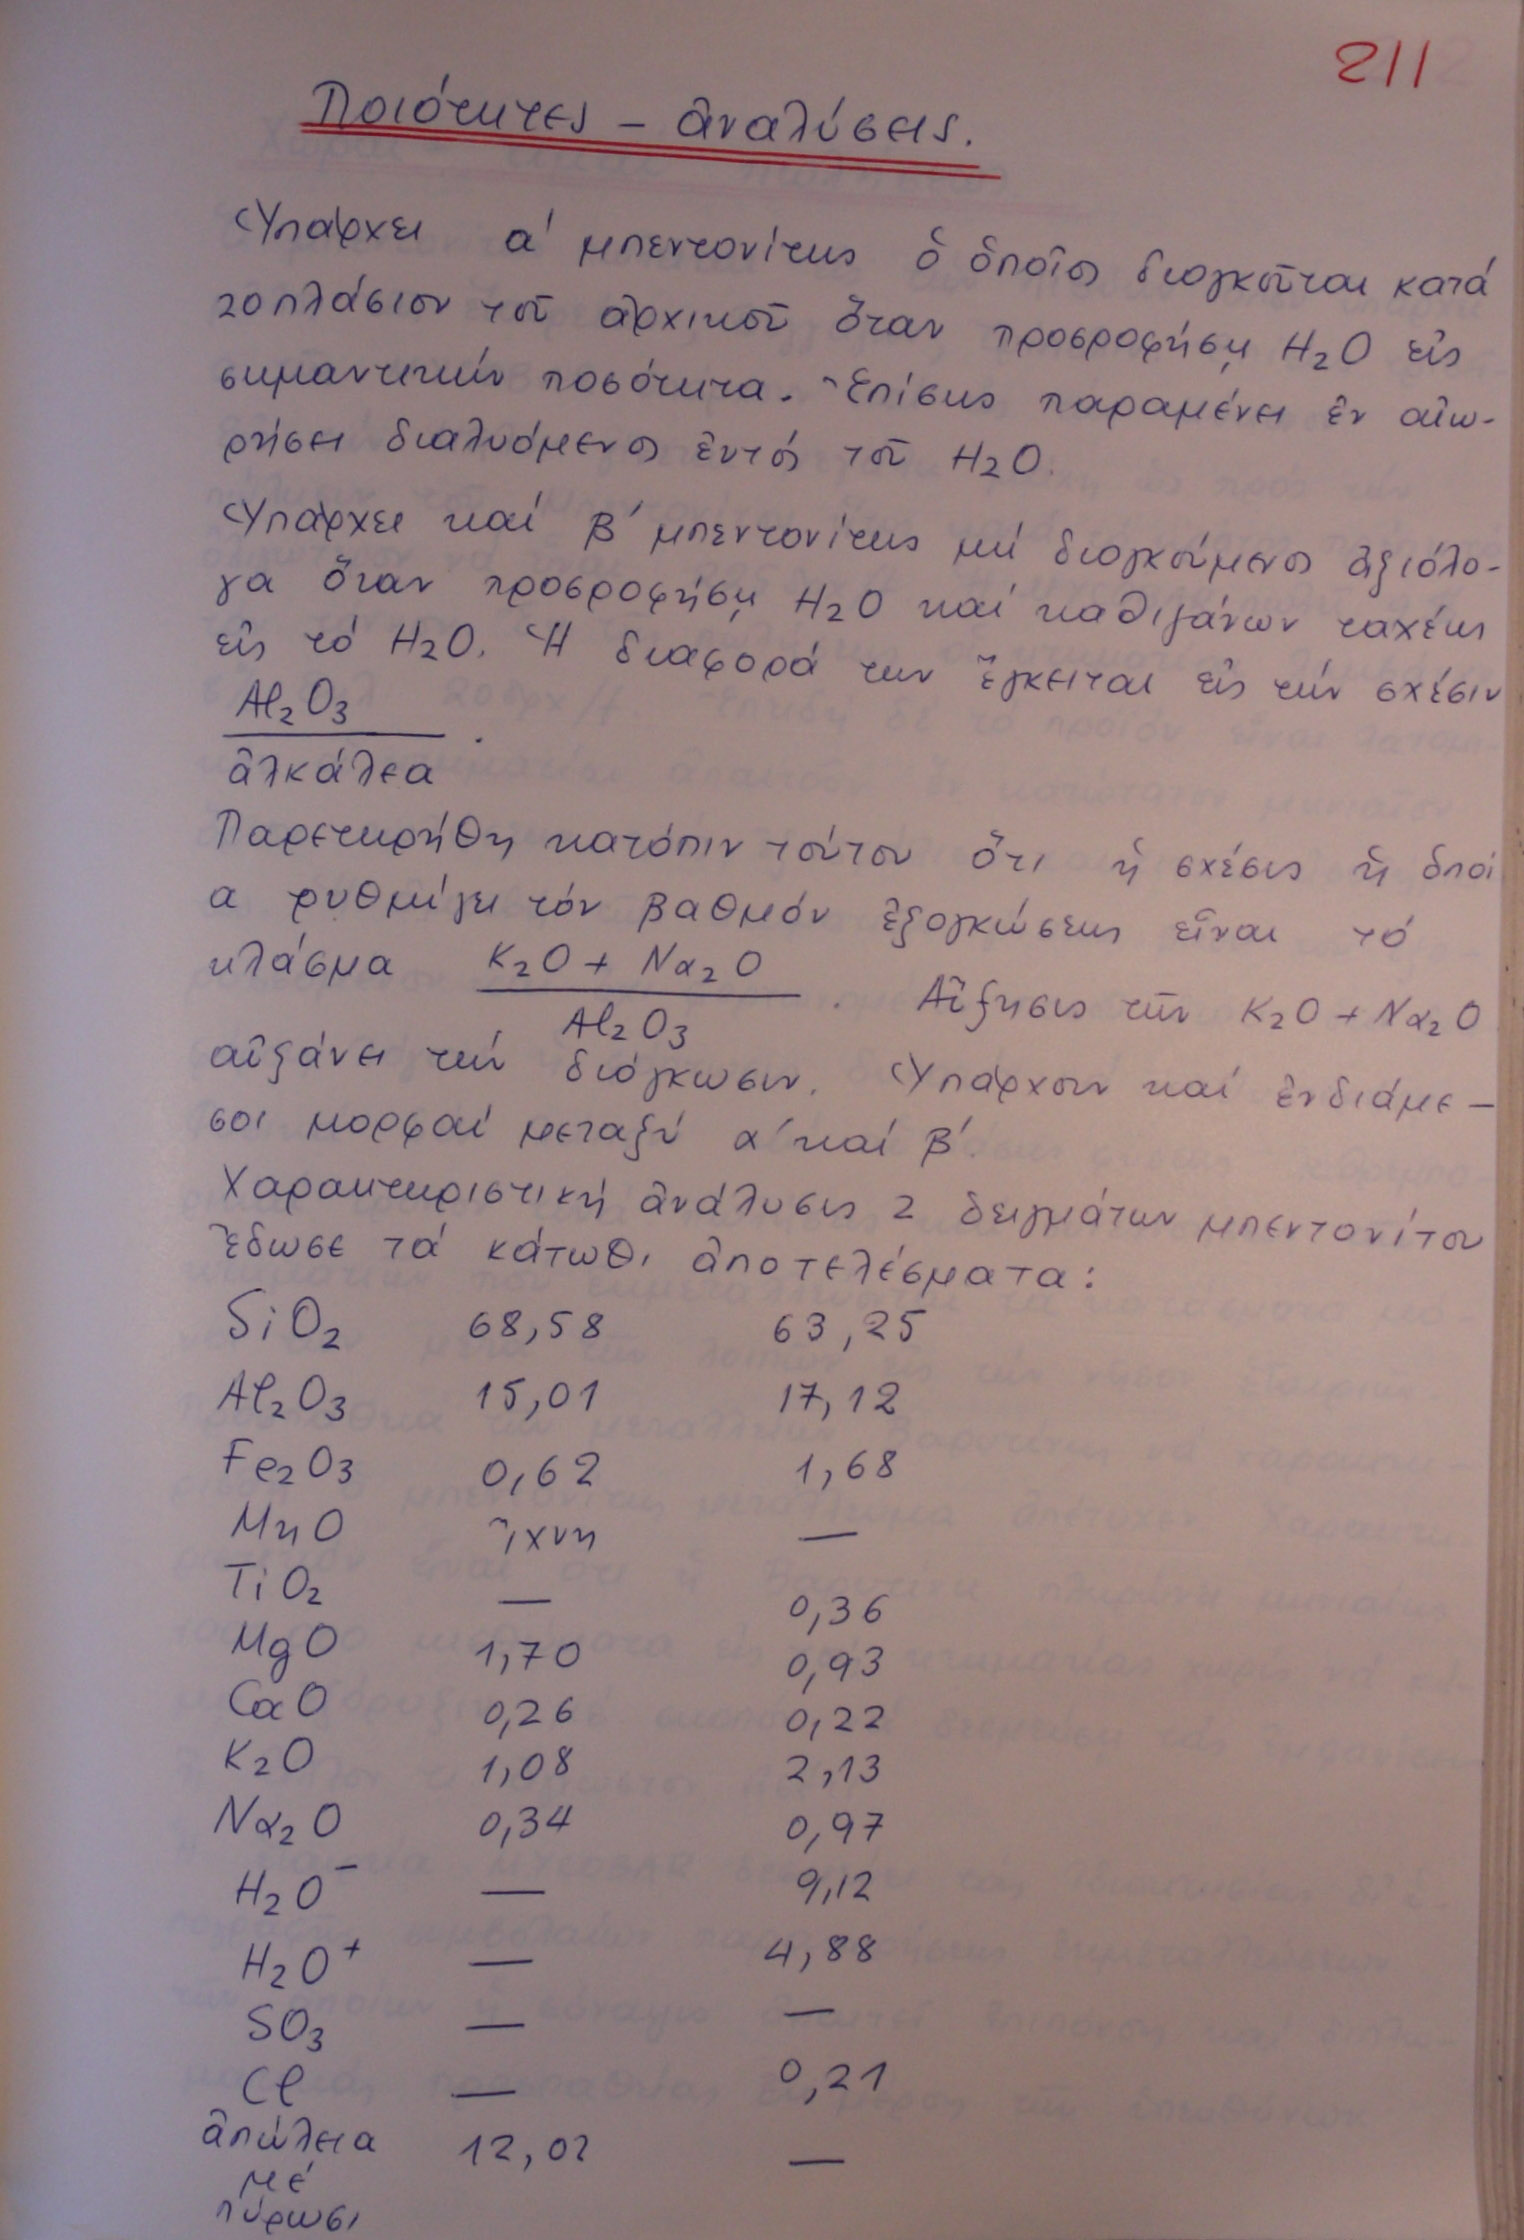 211
Ποιότητες – ἀναλύσεις.
Ὑπάρχει α' μπεντονίτης ὁ ὁποῖος διογκοῦται κατά
20πλάσιον τοῦ ἀρχικοῦ ὅταν προσροφήσῃ H₂O εἰς
σημαντικήν ποσότητα. Ἐπίσης παραμένει ἐν αἰω-
ρήσει διαλυόμενος ἐντός τοῦ H₂O.
Ὑπάρχει καί β' μπεντονίτης μή διογκούμενος ἀξιόλο-
γα ὅταν προσροφήσῃ H₂O καί καθιζάνων ταχέως
εἰς τό H₂O. Ἡ διαφορά των ἔγκειται εἰς τήν σχέσιν
Al₂O₃
ἀλκάλεα .
Παρετηρήθη κατόπιν τούτου ὅτι ἡ σχέσις ἡ ὁποί
α ρυθμίζει τόν βαθμόν ἐξογκώσεως εἶναι τό
κλάσμα K₂O + Na₂O . Αὔξησις τῶν K₂O + Na₂O
Al₂O₃
αὐξάνει τήν διόγκωσιν. Ὑπάρχουν καί ἐνδιάμε-
σοι μορφαί μεταξύ α' καί β'.
Χαρακτηριστική ἀνάλυσις 2 δειγμάτων μπεντονίτου
ἔδωσε τά κάτωθι ἀποτελέσματα:
SiO₂ 68,58 63,25
Al₂O₃ 15,01 17,12
Fe₂O₃ 0,62 1,68
MnO ἴχνη —
TiO₂ — 0,36
MgO 1,70 0,93
CaO 0,26 0,22
K₂O 1,08 2,13
Na₂O 0,34 0,97
H₂O⁻ — 9,12
H₂O⁺ — 4,88
SO₃ — —
Cl — 0,21
ἀπώλεια 12,02 —
μέ
πύρωσι